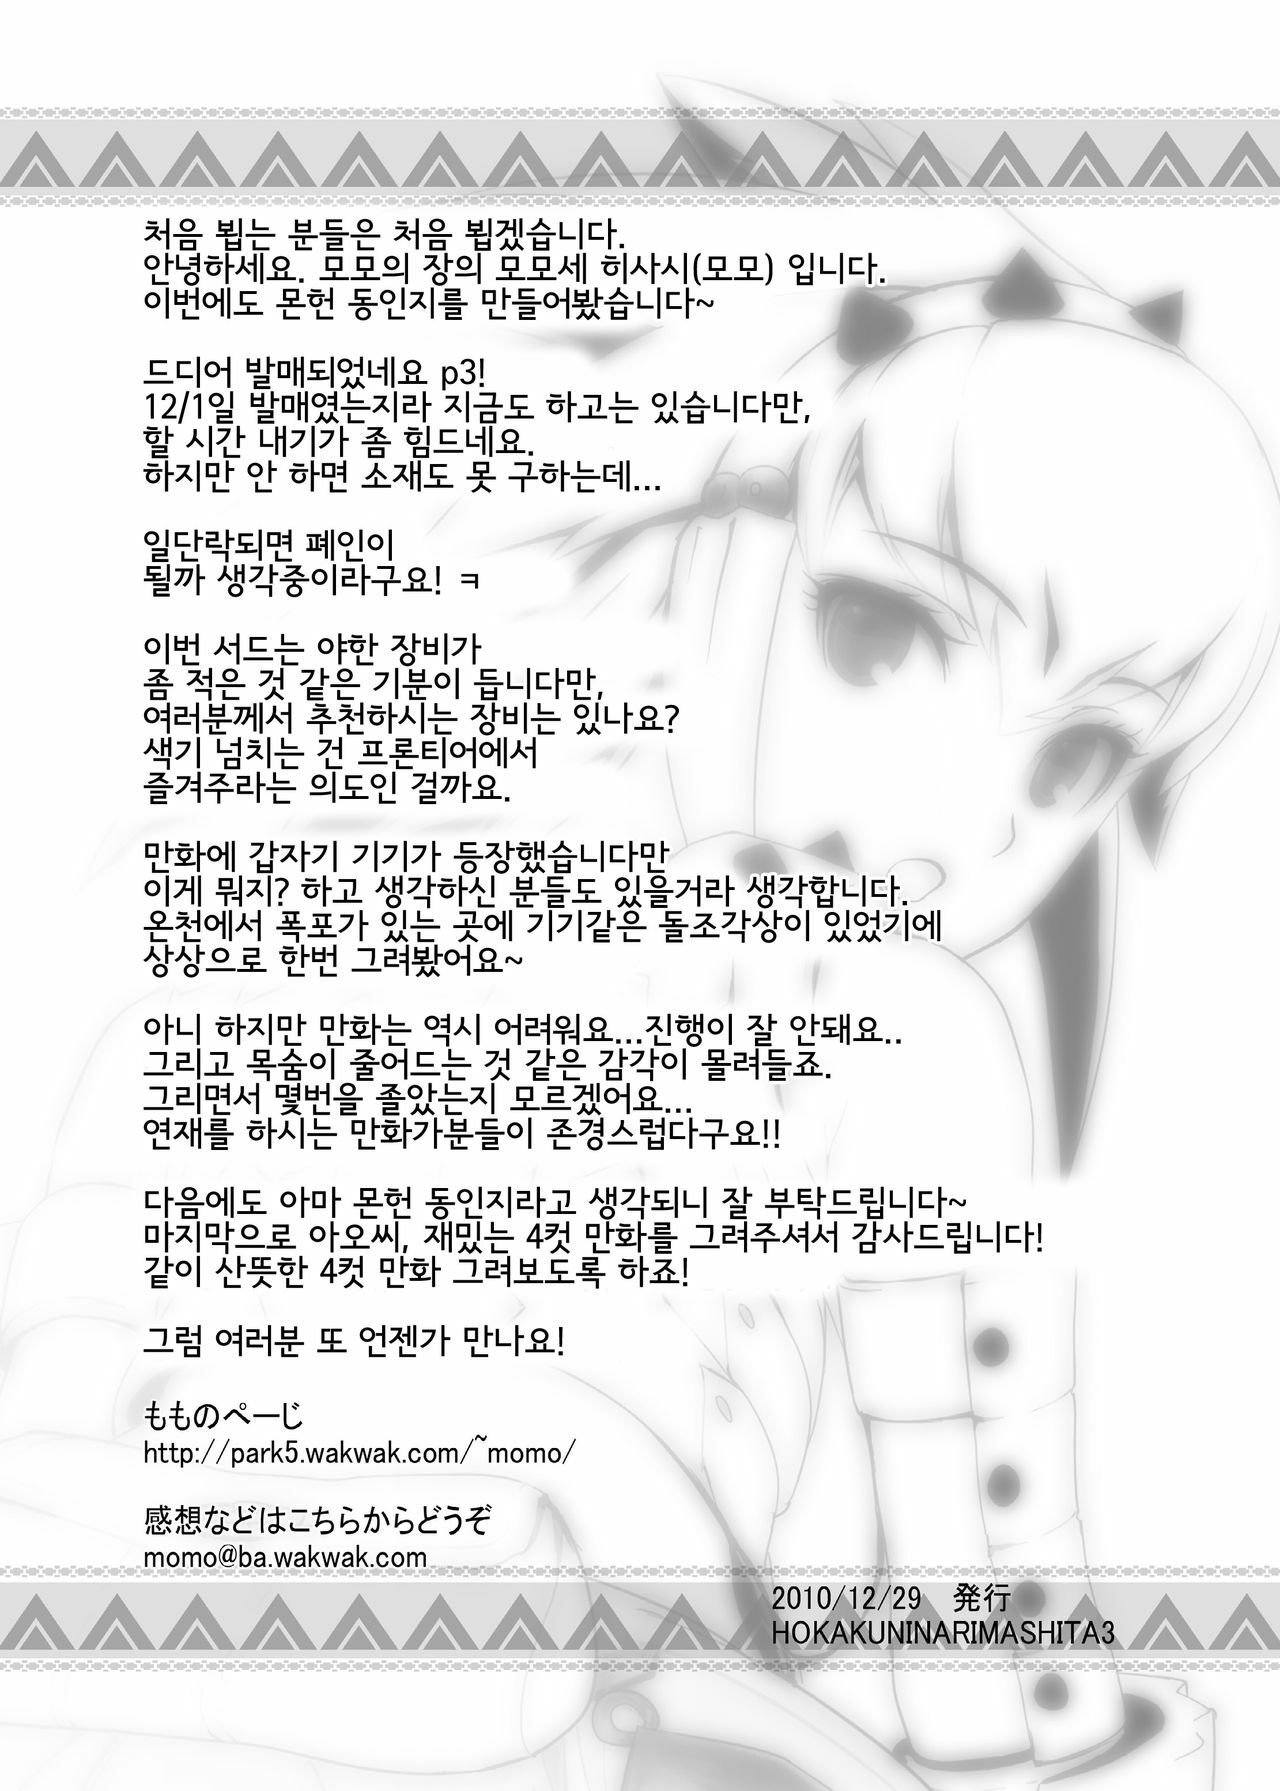 처음 뵙는 분들은 처음 뵙겠습니다.
안녕하세요. 모모의 장의 모모세 히사시(모모) 입니다.
이번에도 몬헌 동인지를 만들어봤습니다~
드디어 발매되었네요 p3!
12/1일 발매였는지라 지금도 하고는 있습니다만,
할 시간 내기가 좀 힘드네요.
하지만 안 하면 소재도 못 구하는데...
일단락되면 폐인이
될까 생각중이라구요! ㅋ
이번 서드는 야한 장비가
좀 적은 것 같은 기분이 듭니다만,
여러분께서 추천하시는 장비는 있나요?
색기 넘치는 건 프론티어에서
즐겨주라는 의도인 걸까요.
만화에 갑자기 기기가 등장했습니다만
이게 뭐지? 하고 생각하신 분들도 있을거라 생각합니다.
온천에서 폭포가 있는 곳에 기기같은 돌조각상이 있었기에
상상으로 한번 그려봤어요~
아니 하지만 만화는 역시 어려워요...진행이 잘 안돼요..
그리고 목숨이 줄어드는 것 같은 감각이 몰려들죠.
그리면서 몇번을 졸았는지 모르겠어요...
연재를 하시는 만화가분들이 존경스럽다구요!!
다음에도 아마 몬헌 동인지라고 생각되니 잘 부탁드립니다~
마지막으로 아오씨, 재밌는 4컷 만화를 그려주셔서 감사드립니다!
같이 산뜻한 4컷 만화 그려보도록 하죠!
그럼 여러분 또 언젠가 만나요!
もものぺーじ
http://park5.wakwak.com/~momo/
感想などはこちらからどうぞ
momo@ba.wakwak.com
2010/12/29　発行
HOKAKUNINARIMASHITA3